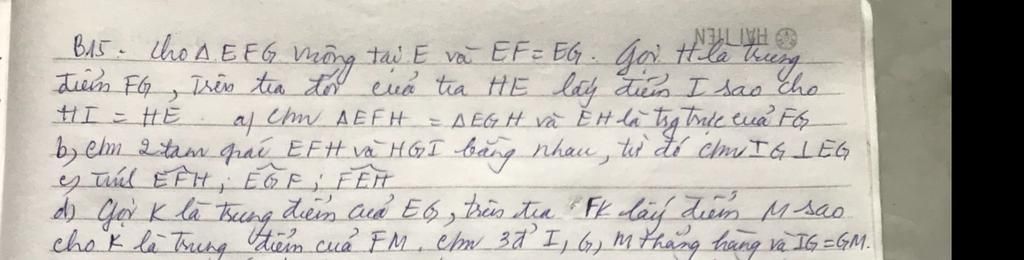 HẢI TIẾN
B15. Cho Δ EFG vuông tại E và EF = EG. Gọi H là trung
điểm FG, trên tia đối của tia HE lấy điểm I sao cho
HI = HE. a) Cm ΔEFH = ΔEGH và EH là tg trực của FG
b) Cm 2 tam giác EFH và HGI bằng nhau, từ đó cm IG ⊥ EG
c) Tính EFH; EGF; FEH
d) Gọi K là trung điểm của EG, trên tia FK lấy điểm M sao
cho K là trung điểm của FM. Cm 3đ' I, G, M thẳng hàng và IG = GM.